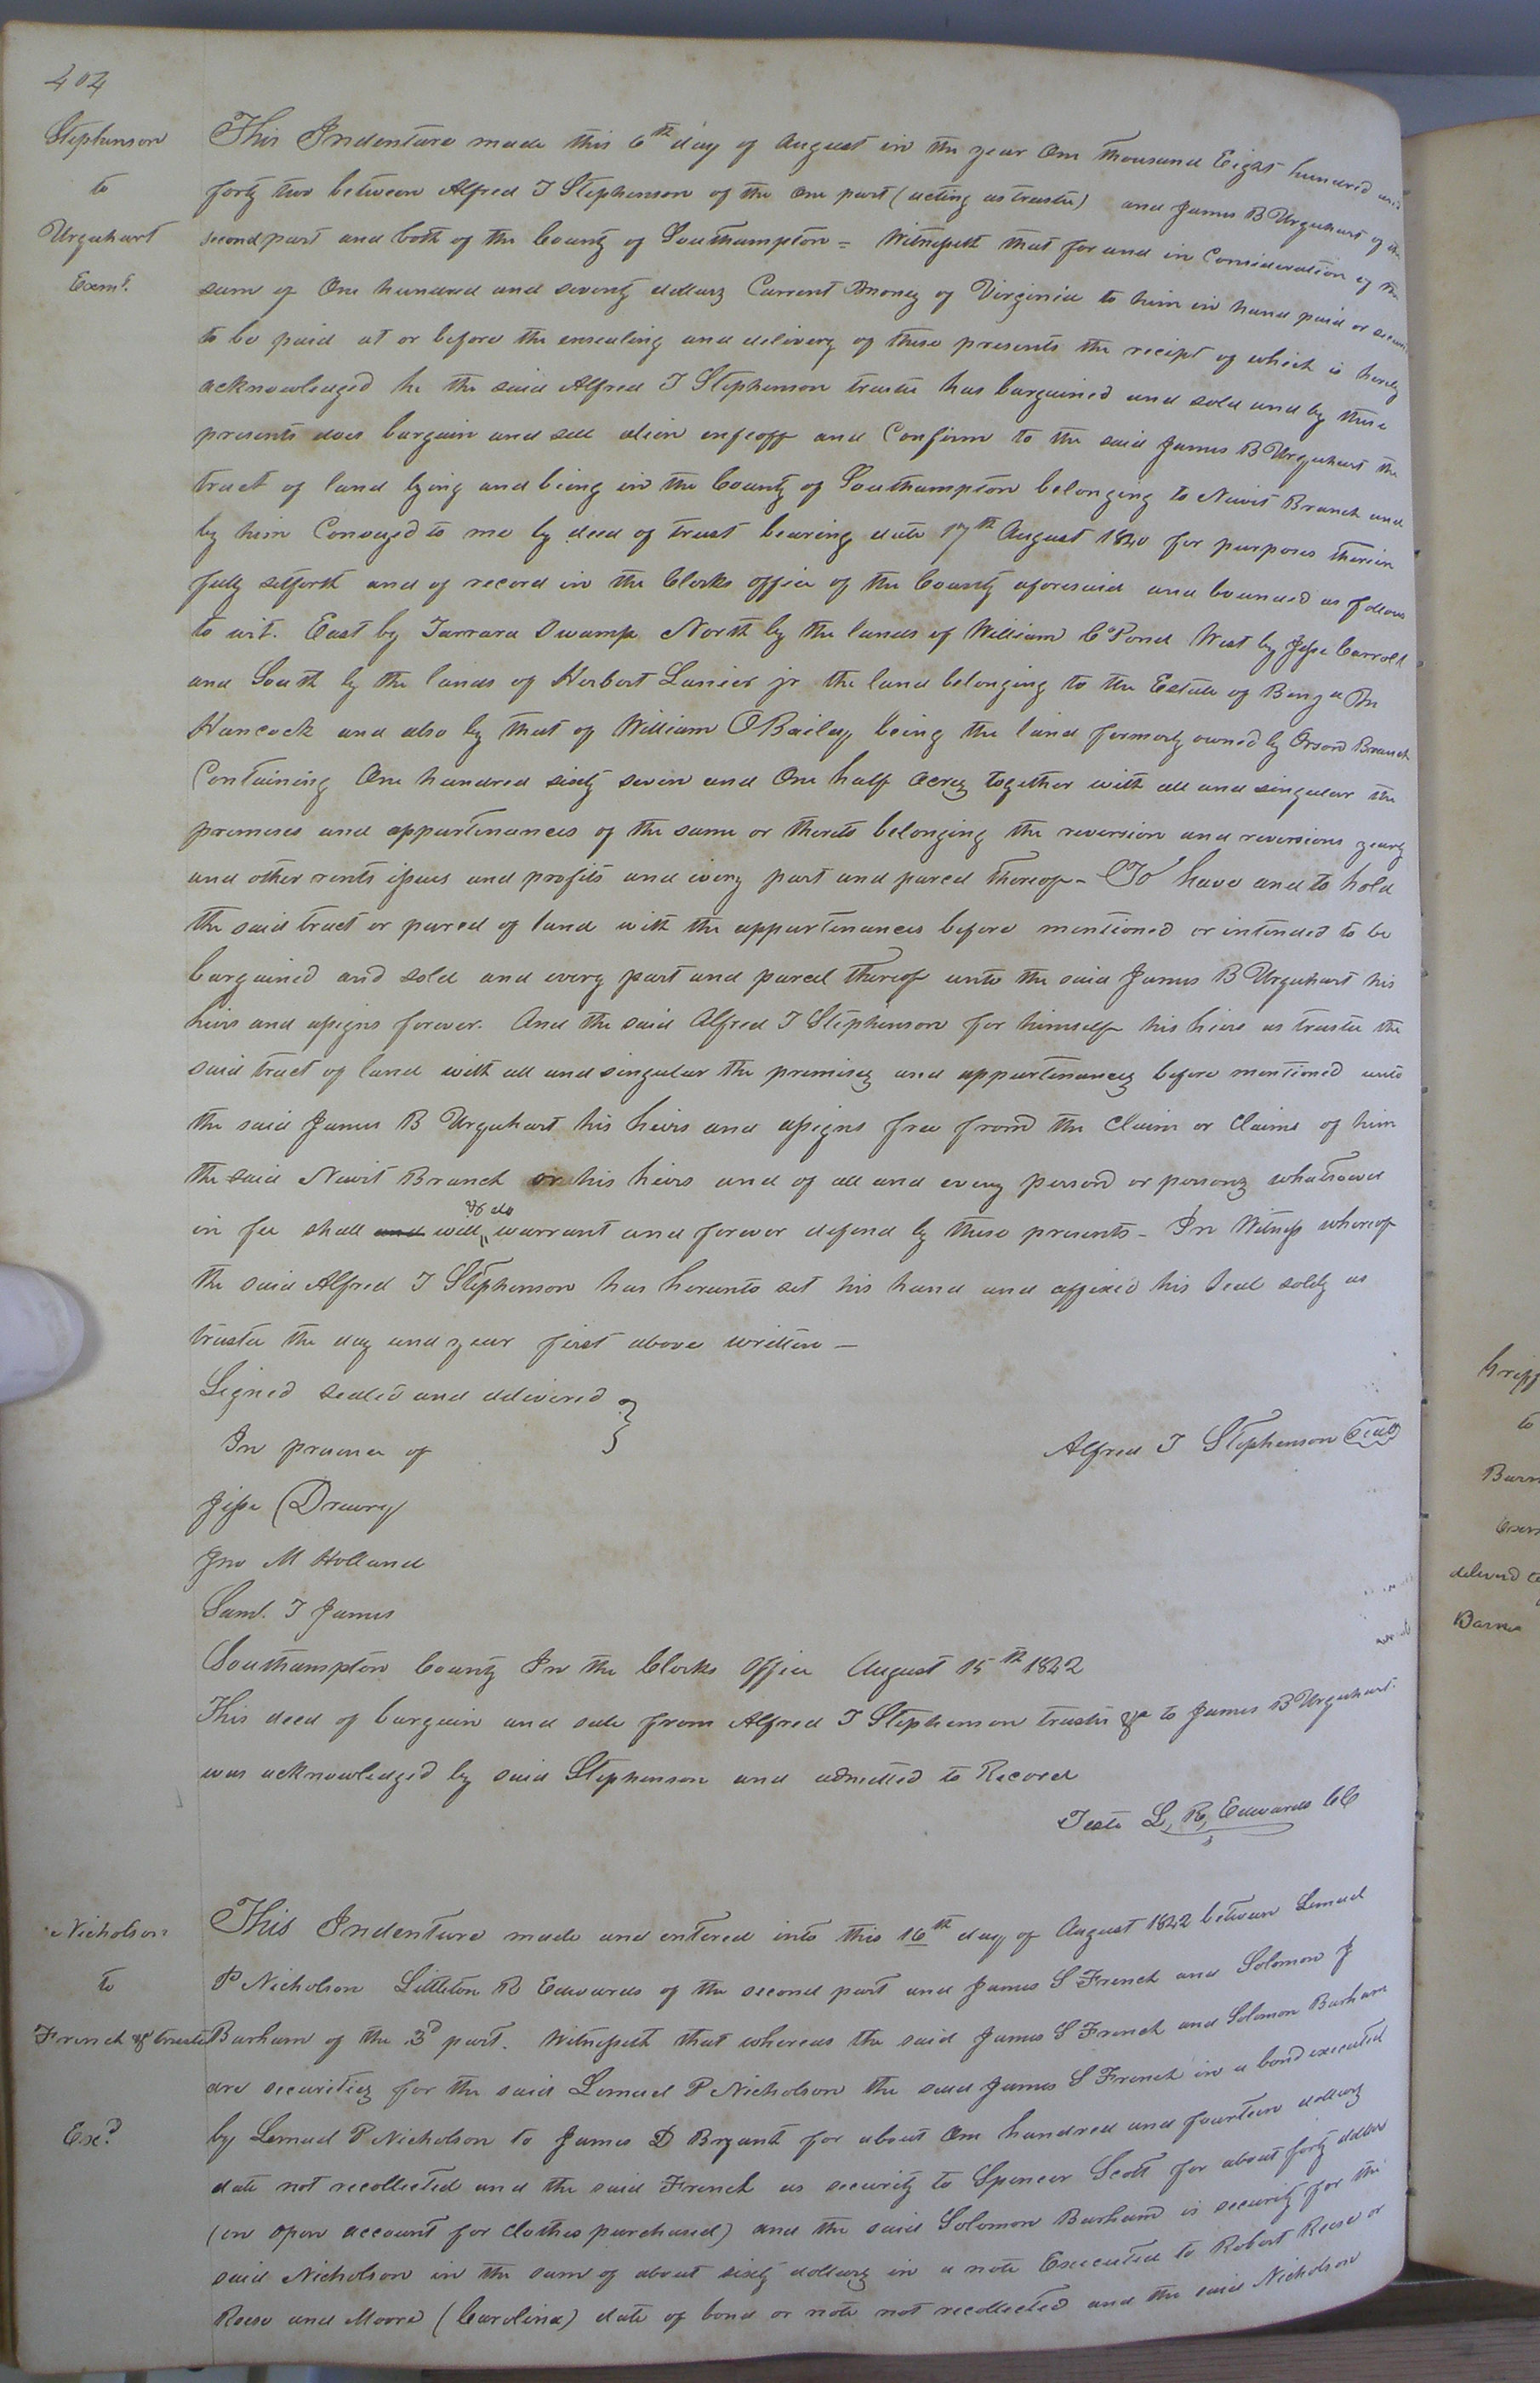 404
Stephenson
to
Urquhart
Exam.d
This Indenture made this 6th day of August in the year One thousand Eight hundred and
forty two between Alfred J Stephenson of the One part (acting as trustee) and James B Urquhart of the
second part and both of the County of Southampton = Witnesseth that for and in Consideration of the
sum of One hundred and seventy dollars Current Money of Virginia to him in hand paid or
to be paid at or before the ensealing and delivery of these presents the recipt of which is hereby
acknowledged he the said Alfred J Stephenson trustee has bargained and sold and by these
presents does bargain and sell alien enfeoff and Confirm to the said James B Urquhart the
tract of land lying and being in the County of Southampton belonging to Newit Branch and
by him Conveyed to me by deed of trust bearing date 17th August 1840 for purposes therein
fully setforth and of record in the Clerks office of the County aforesaid and bounded as follows
to wit. East by Tarrara Swamp North by the lands of William C Pond West by Jesse Carroll
and South by the lands of Herbert Lanier jr the land belonging to the Estate of Benja M
Hancock and also by that of William O Bailey being the land formerly owned by Orson Branch
Containing One hundred sixty seven and One half Acres together with all and singular the
premises and appurtenances of the same or thereto belonging the reversion and reversions yearly
and other rents issues and profits and every part and parcel thereof - To have and to hold
the said tract or parcel of land with the appurtenances before mentioned or intended to be
bargained and sold and every part and parcel thereof unto the said James B Urquhart his
heirs and assigns forever. And the said Alfred J Stephenson for himself his heirs as trustee the
said tract of land with all and singular the premises and appurtenances before mentioned unto
the said James B Urquhart his heirs and assigns free from the Claim or Claims of him
the said Newit Branch or his heirs and of all and every person or persons whatsoever
& do
in fee shall and will warrant and forever defend by these presents - In Witness whereof
the said Alfred J Stephenson has hereunto set his hand and affixed his Seal solely as
trustee the day and year first above written -
Signed sealed and delivered
In presence of
Alfred J Stephenson Seal
Jesse Drewry
Jno M Holland
Saml. J James
Southampton County In the Clerks Office August 15th 1842
This deed of bargain and sale from Alfred J Stephenson trustee &c to James B Urquhart
was acknowledged by said Stephenson and admitted to Record
Teste L, R, Edwards CC
Nicholson
to
French & trustee
Exd
This Indenture made and entered into this 16th day of August 1842 between Lemuel
P Nicholson Littleton R Edwards of the second part and James S French and Solomon J
Barham of the 3d part. Witnesseth that whereas the said James S French and Solomon Barham
are securities for the said Lemuel P Nicholson the said James S French in a bond executed
by Lemuel P Nicholson to James D Bryant for about One hundred and fourteen dollars
date not recollected and the said French as security to Spencer Scott for about forty dollars
(on open account for clothes purchased) and the said Solomon Barham is security for the
said Nicholson in the sum of about sixty dollars in a note Executed to Robert Reese or
Reese and Moore (Carolina) date of bond or note not recollected and the said Nicholson
to
delivered
Barnes